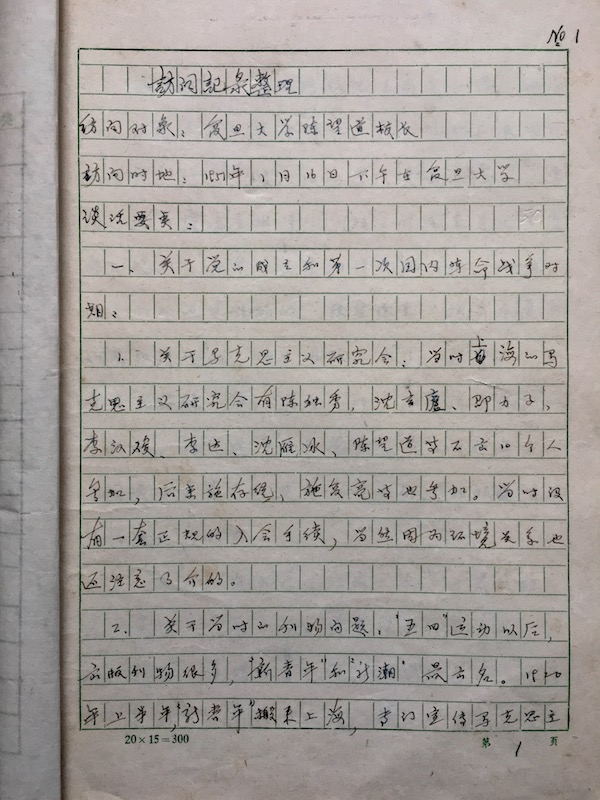 № 1
訪问記录整理
访问对象：复旦大学陈望道校长
訪问时地：1951年1月16日下午在复旦大学
谈话要点：
一、关于党的成立和第一次国内革命战争时
期：
1、关于马克思主义研究会：当时上海的马
克思主义研究会有陈独秀，沈玄廬、邵力子、
李汉俊、李达、沈雁冰、陈望道等不出10个人
参加，后来施存统、施复亮等也参加。当时没
有一套正规的入会手续，当然因为环境关系也
还注意介的。
2、关于当时的刊物问题："五四"运动以后，
出版刊物很多，"新青年"和"新潮"最出名。1920
年上半年，"新青年"搬来上海，专门宣传马克思主
20×15=300
第 1 页